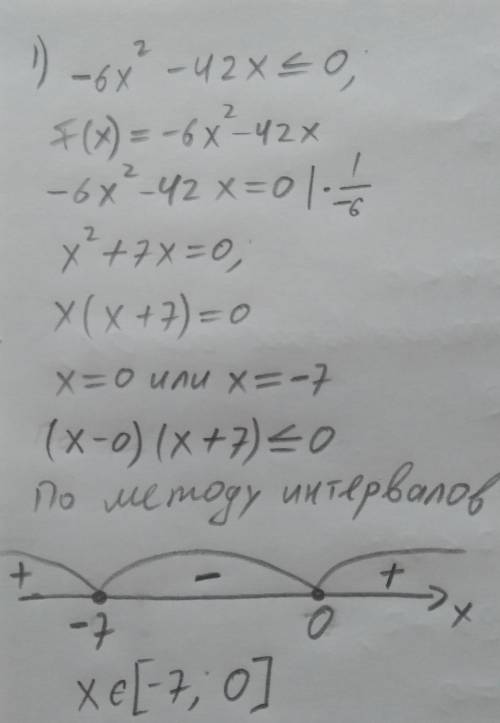 1) -6x² - 42x ≤ 0;
F(x) = -6x² - 42x
-6x² - 42x = 0 | · 1/-6
x² + 7x = 0;
x(x + 7) = 0
x = 0 или x = -7
(x - 0)(x + 7) ≤ 0
По методу интервалов
+ - +
-7 0 x
x ∈ [-7; 0]